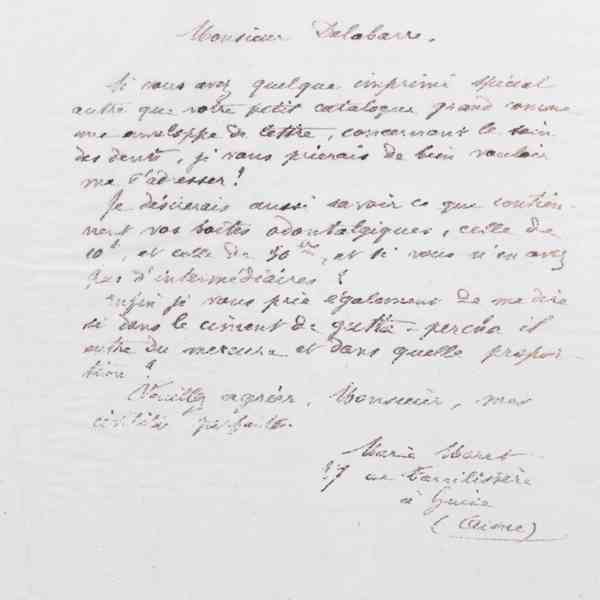 Monsieur Delabarre.
Si vous avez quelque imprimé spécial
autre que votre petit catalogue grand comme
une enveloppe de lettre, concernant le soin
des dents, je vous prierais de bien vouloir
me l'adresser!
Je désirerais aussi savoir ce que contien-
nent vos boîtes odontalgiques, celle de
10f, et celle de 50, et si vous n'en avez
pas d'intermédiaires?
Enfin je vous prie également de me dire
si dans le ciment de gutta-percha il
entre du mercure et dans quelle propor-
tion?
Veuillez agréer, Monsieur, mes
civilités parfaites.
Marie
au Familistère
à Guise
(Aisne)